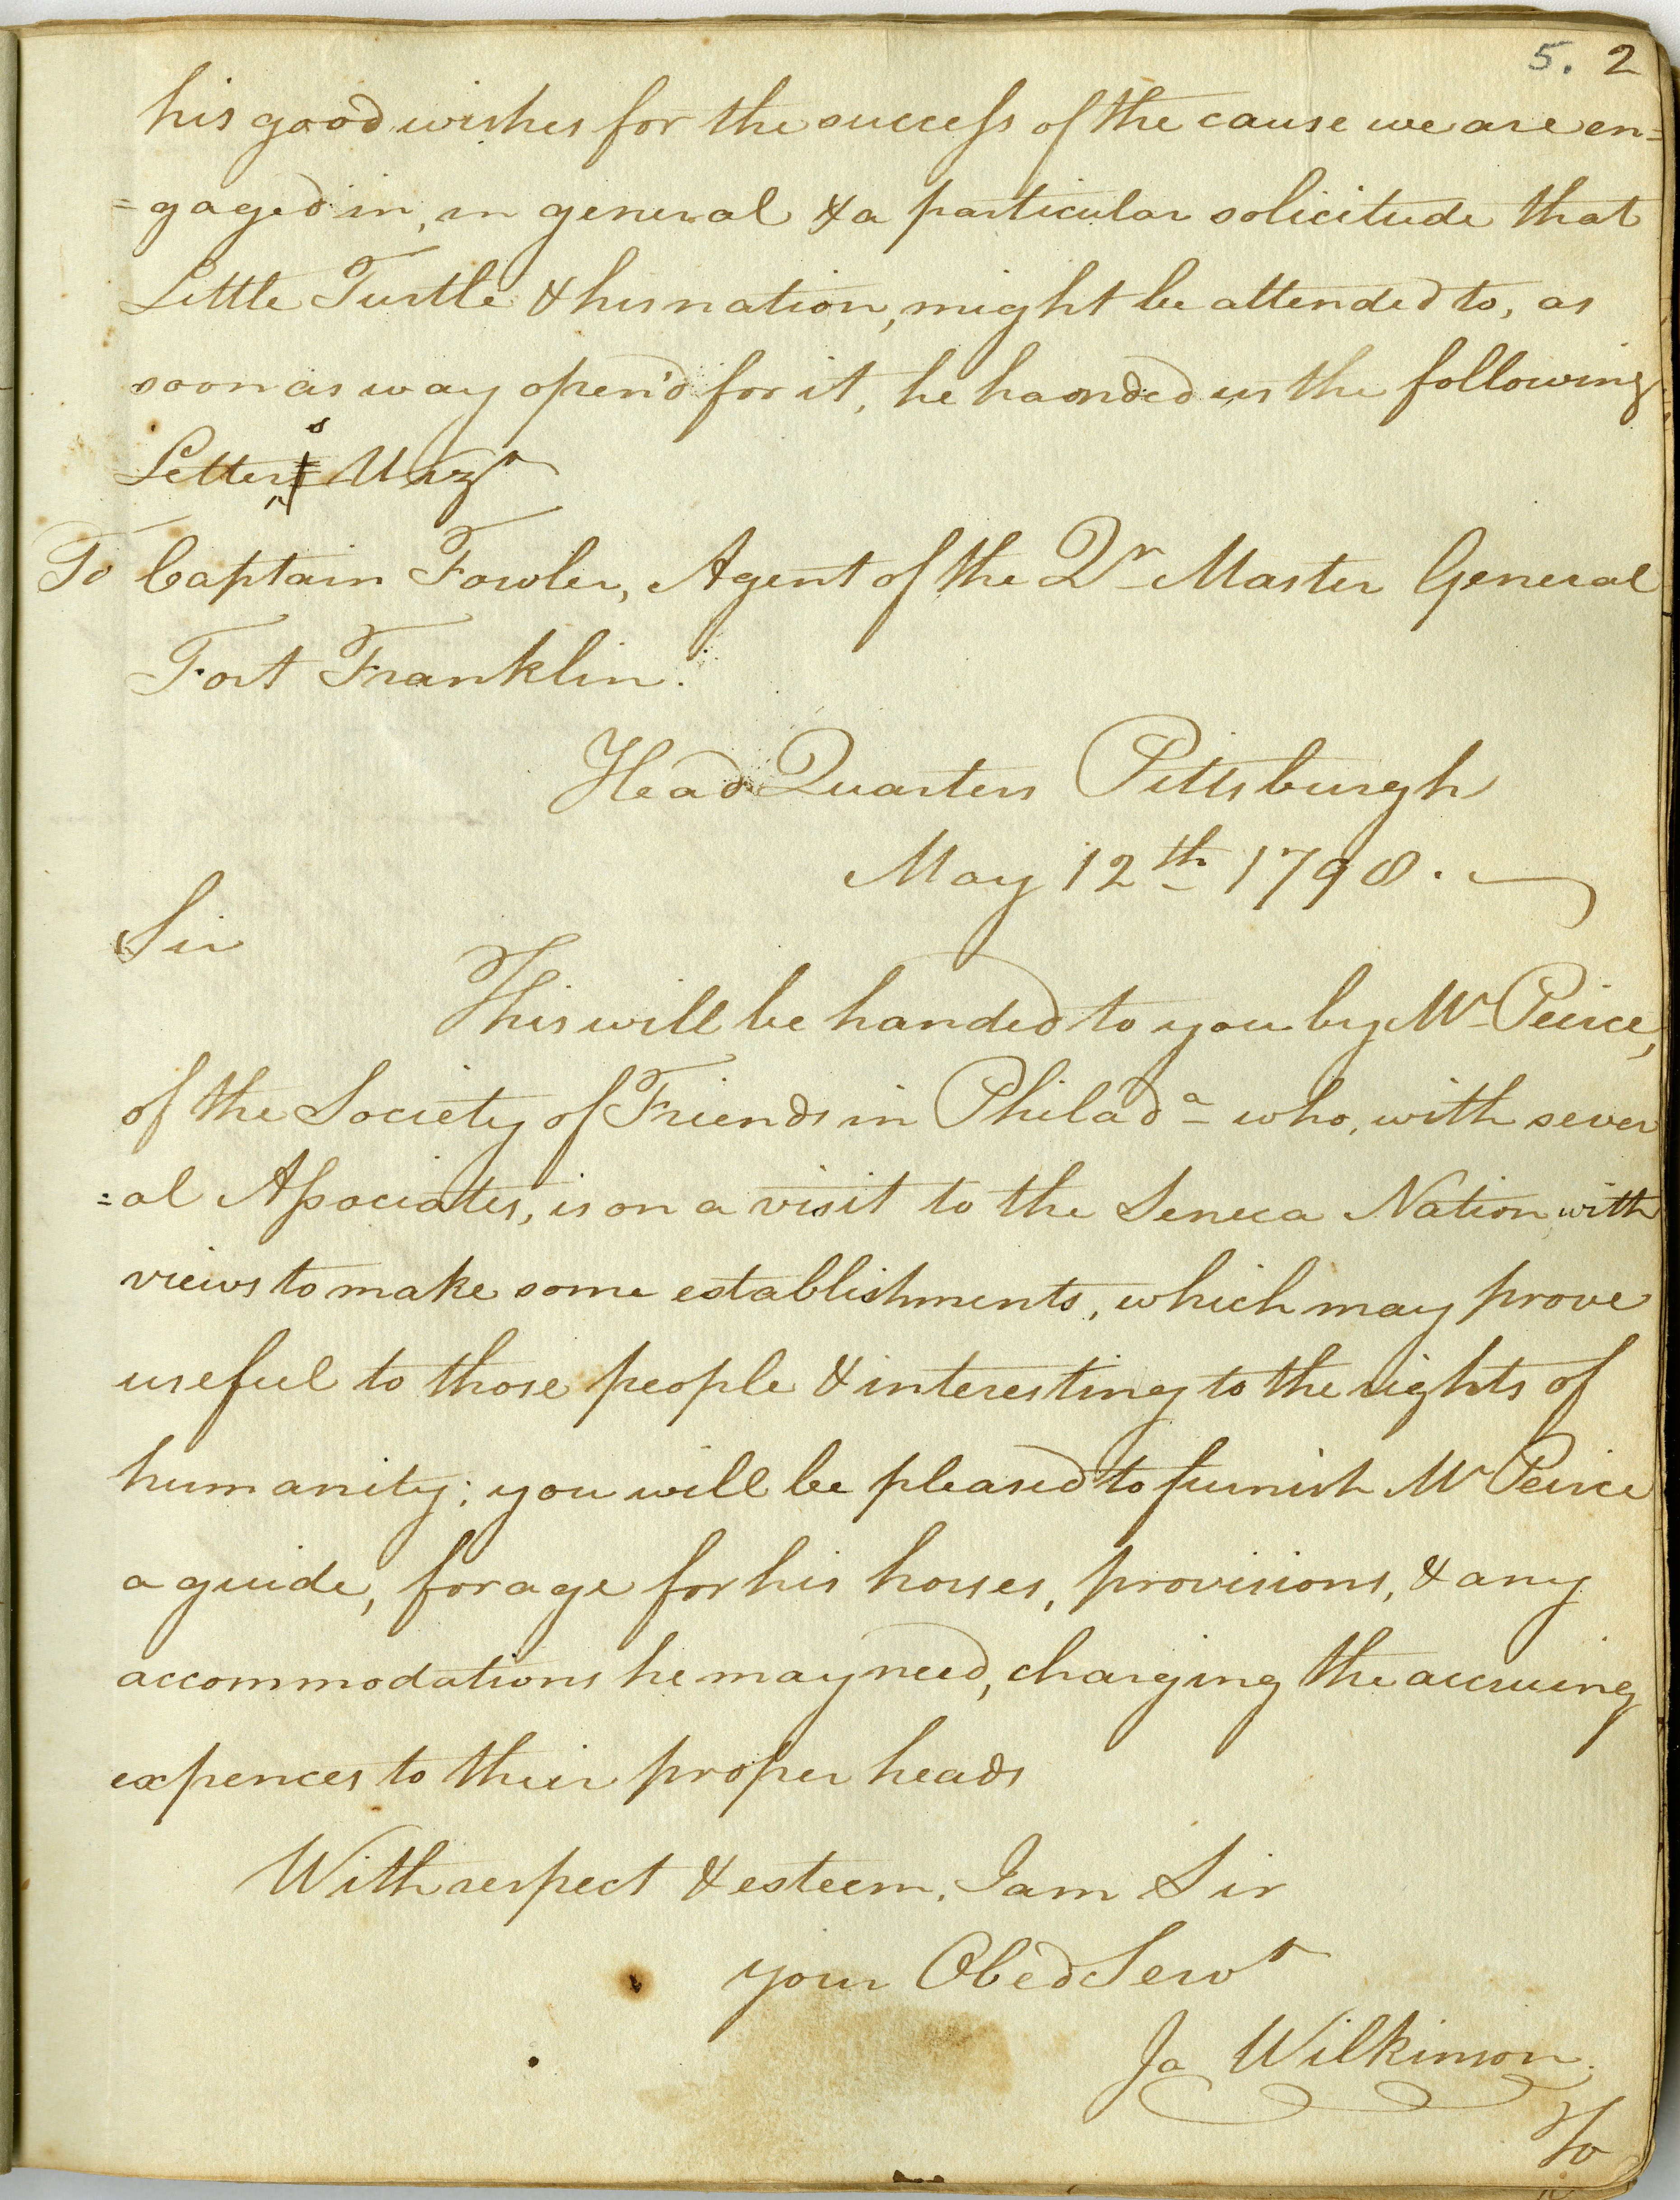 5. 2
his good wishes for the success of the cause we are en=
=gaged in, in general & a particular solicitude that
Little Turtle & his nation, might be attended to, as
soon as way open'd for it, he handed us the following
Letters Vizt
To Captain Fowler, Agent of the Qr Master General
Fort Franklin.
Head Quarters Pittsburgh
May 12th 1798.
Sir
This will be handed to you by Mr Peirce,
of the Society of Friends in Philada who, with sever
=al Associates, is on a visit to the Seneca Nation with
views to make some establishments, which may prove
useful to those people & interesting to the rights of
humanity; you will be pleased to furnish Mr Peirce
a guide, forage for his horses, provisions, & any
accommodations he may need, charging the accruing
expences to their proper heads
With respect & esteem, I am Sir
your Obed Servt
Ja Wilkinson.
To